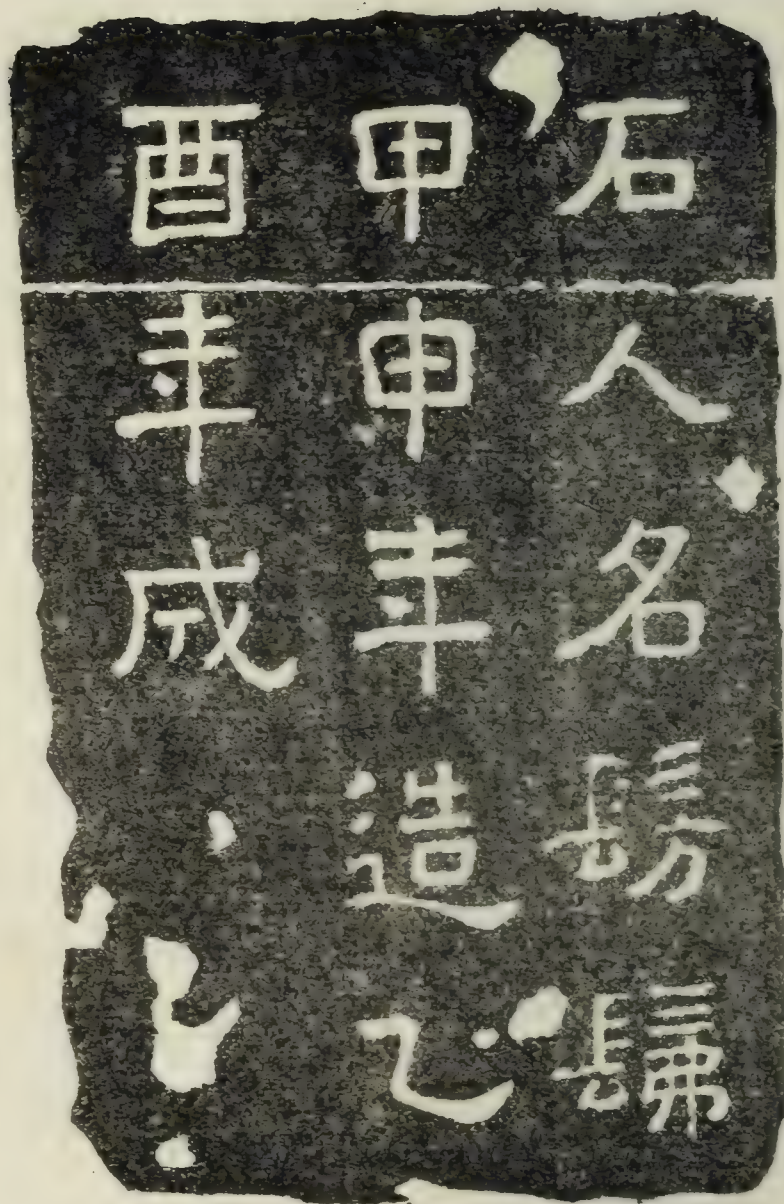 石人名髣髴
甲申年造乙
酉年成